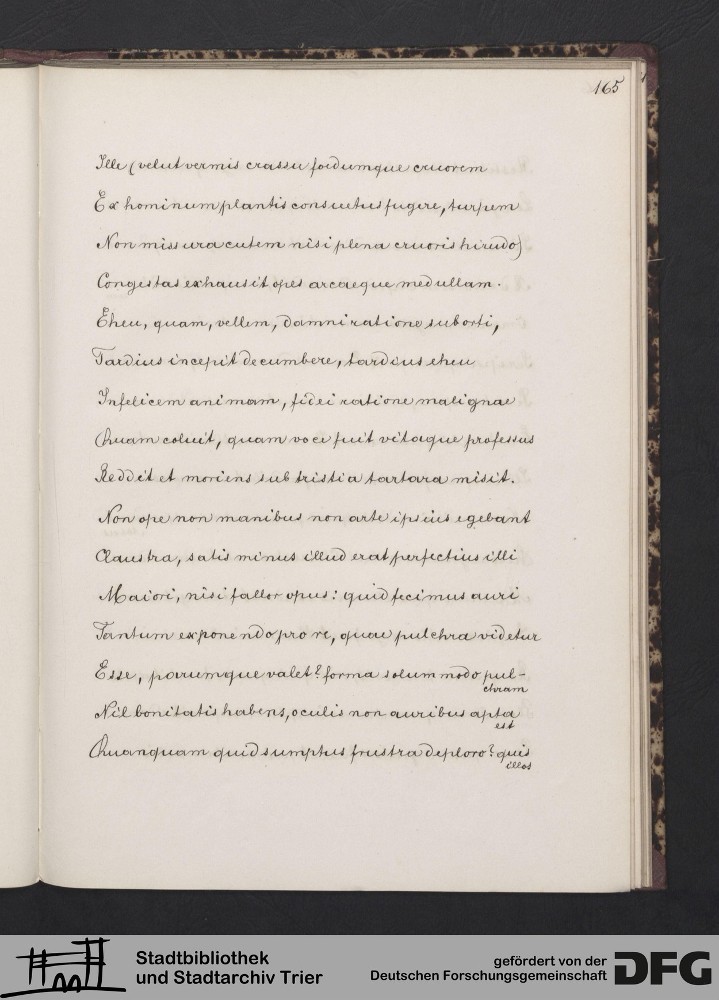 165
Ille (velut vermis crassu foedumque cruorem
Ex hominum plantis consuetus fugere, turpem
Non missura cutem nisi plena cruoris hirudo)
Congestas exhausit opes arcaeque medullam.
Eheu, quam, vellem, damni ratione suborti,
Tardius incepit decumbere, tardius eheu
Infelicem animam, fidei ratione malignae
Quam coluit, quam voce fuit vitaque professus
Reddit et moriens sub tristia tartara misit.
Non ope non manibus non arte ipsius egebant
Claustra, satis minus illud erat perfectius illi
Maiori, nisi fallor opus: quid fecimus auri
Tantum exponendo pro re, quae pulchra videtur
Esse, parumque valet? forma solummodo pul-
chram
Nil bonitatis habens, oculis non auribus apta
est
Quanquam quid sumptus frustra deploro? quis
illos
Stadtbibliothek
und Stadtarchiv Trier
gefördert von der
Deutschen Forschungsgemeinschaft
DFG